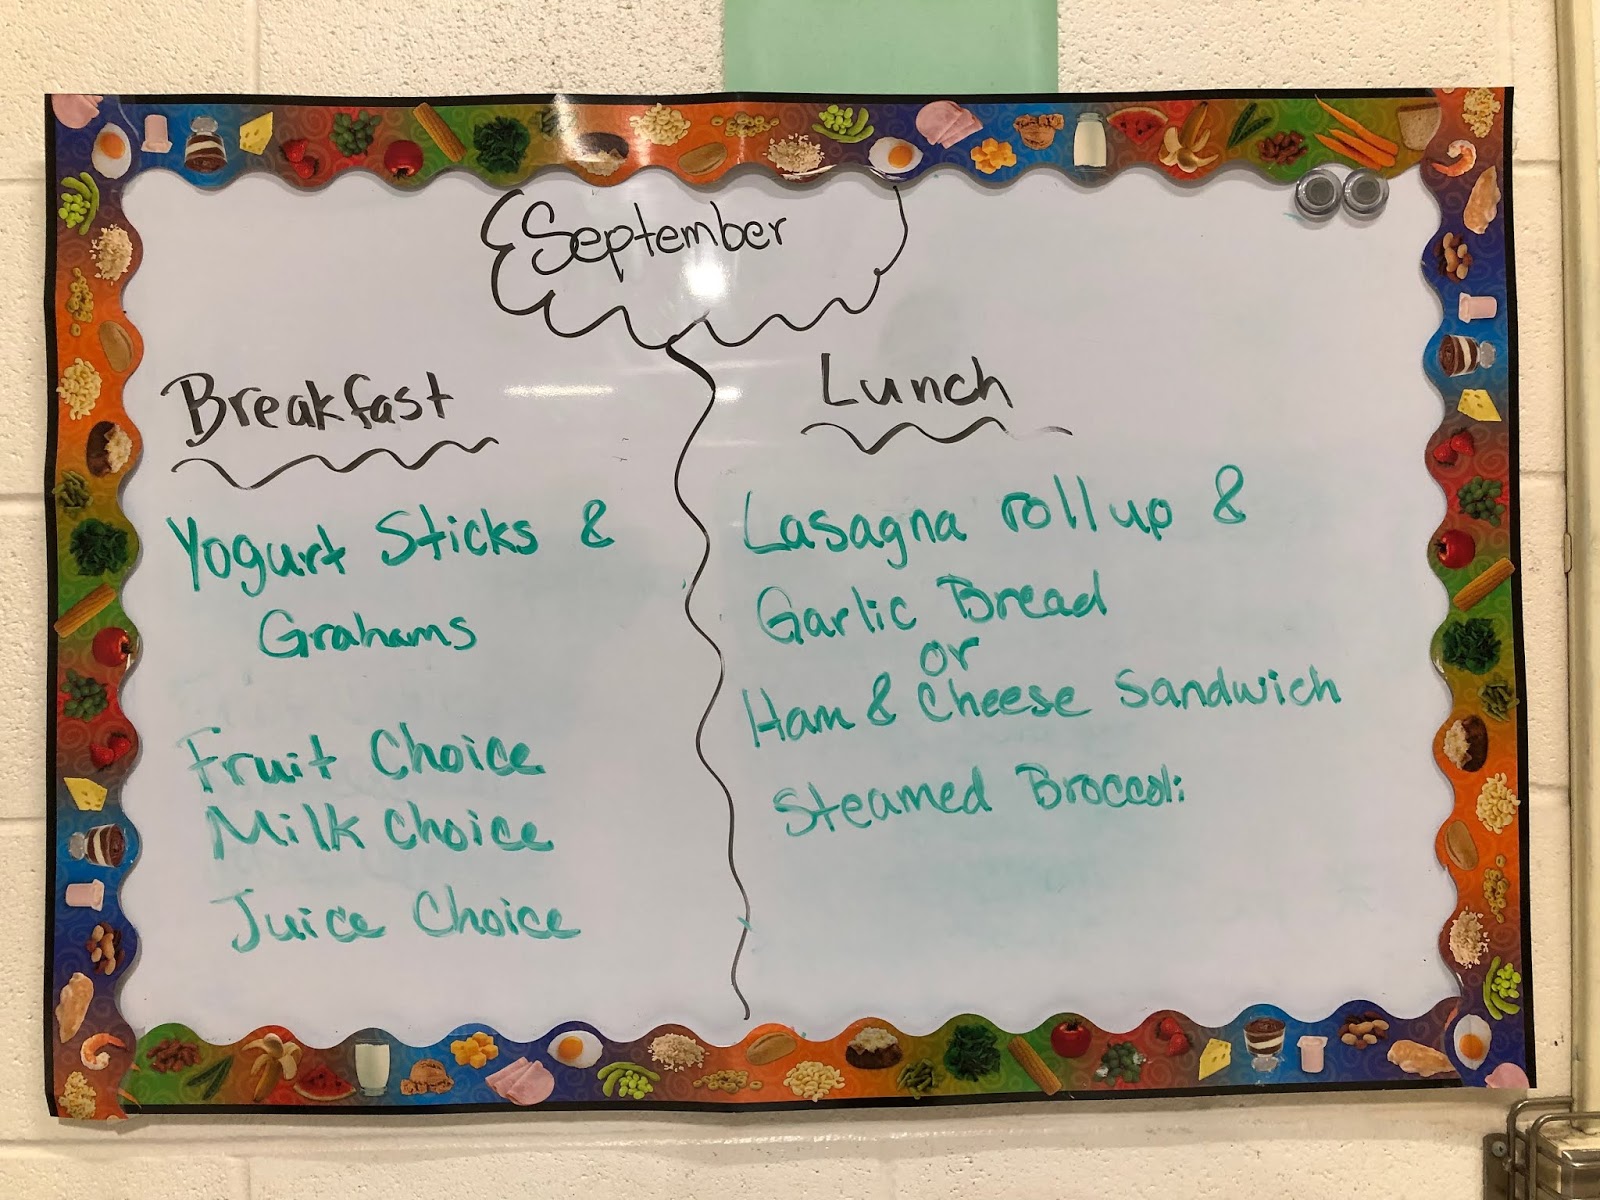 September
Breakfast
Yogurt Sticks &
Grahams
Fruit Choice
Milk Choice
Juice Choice
Lunch
Lasagna roll up &
Garlic Bread
or
Ham & Cheese Sandwich
Steamed Broccoli